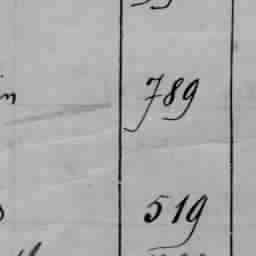 in 789
519